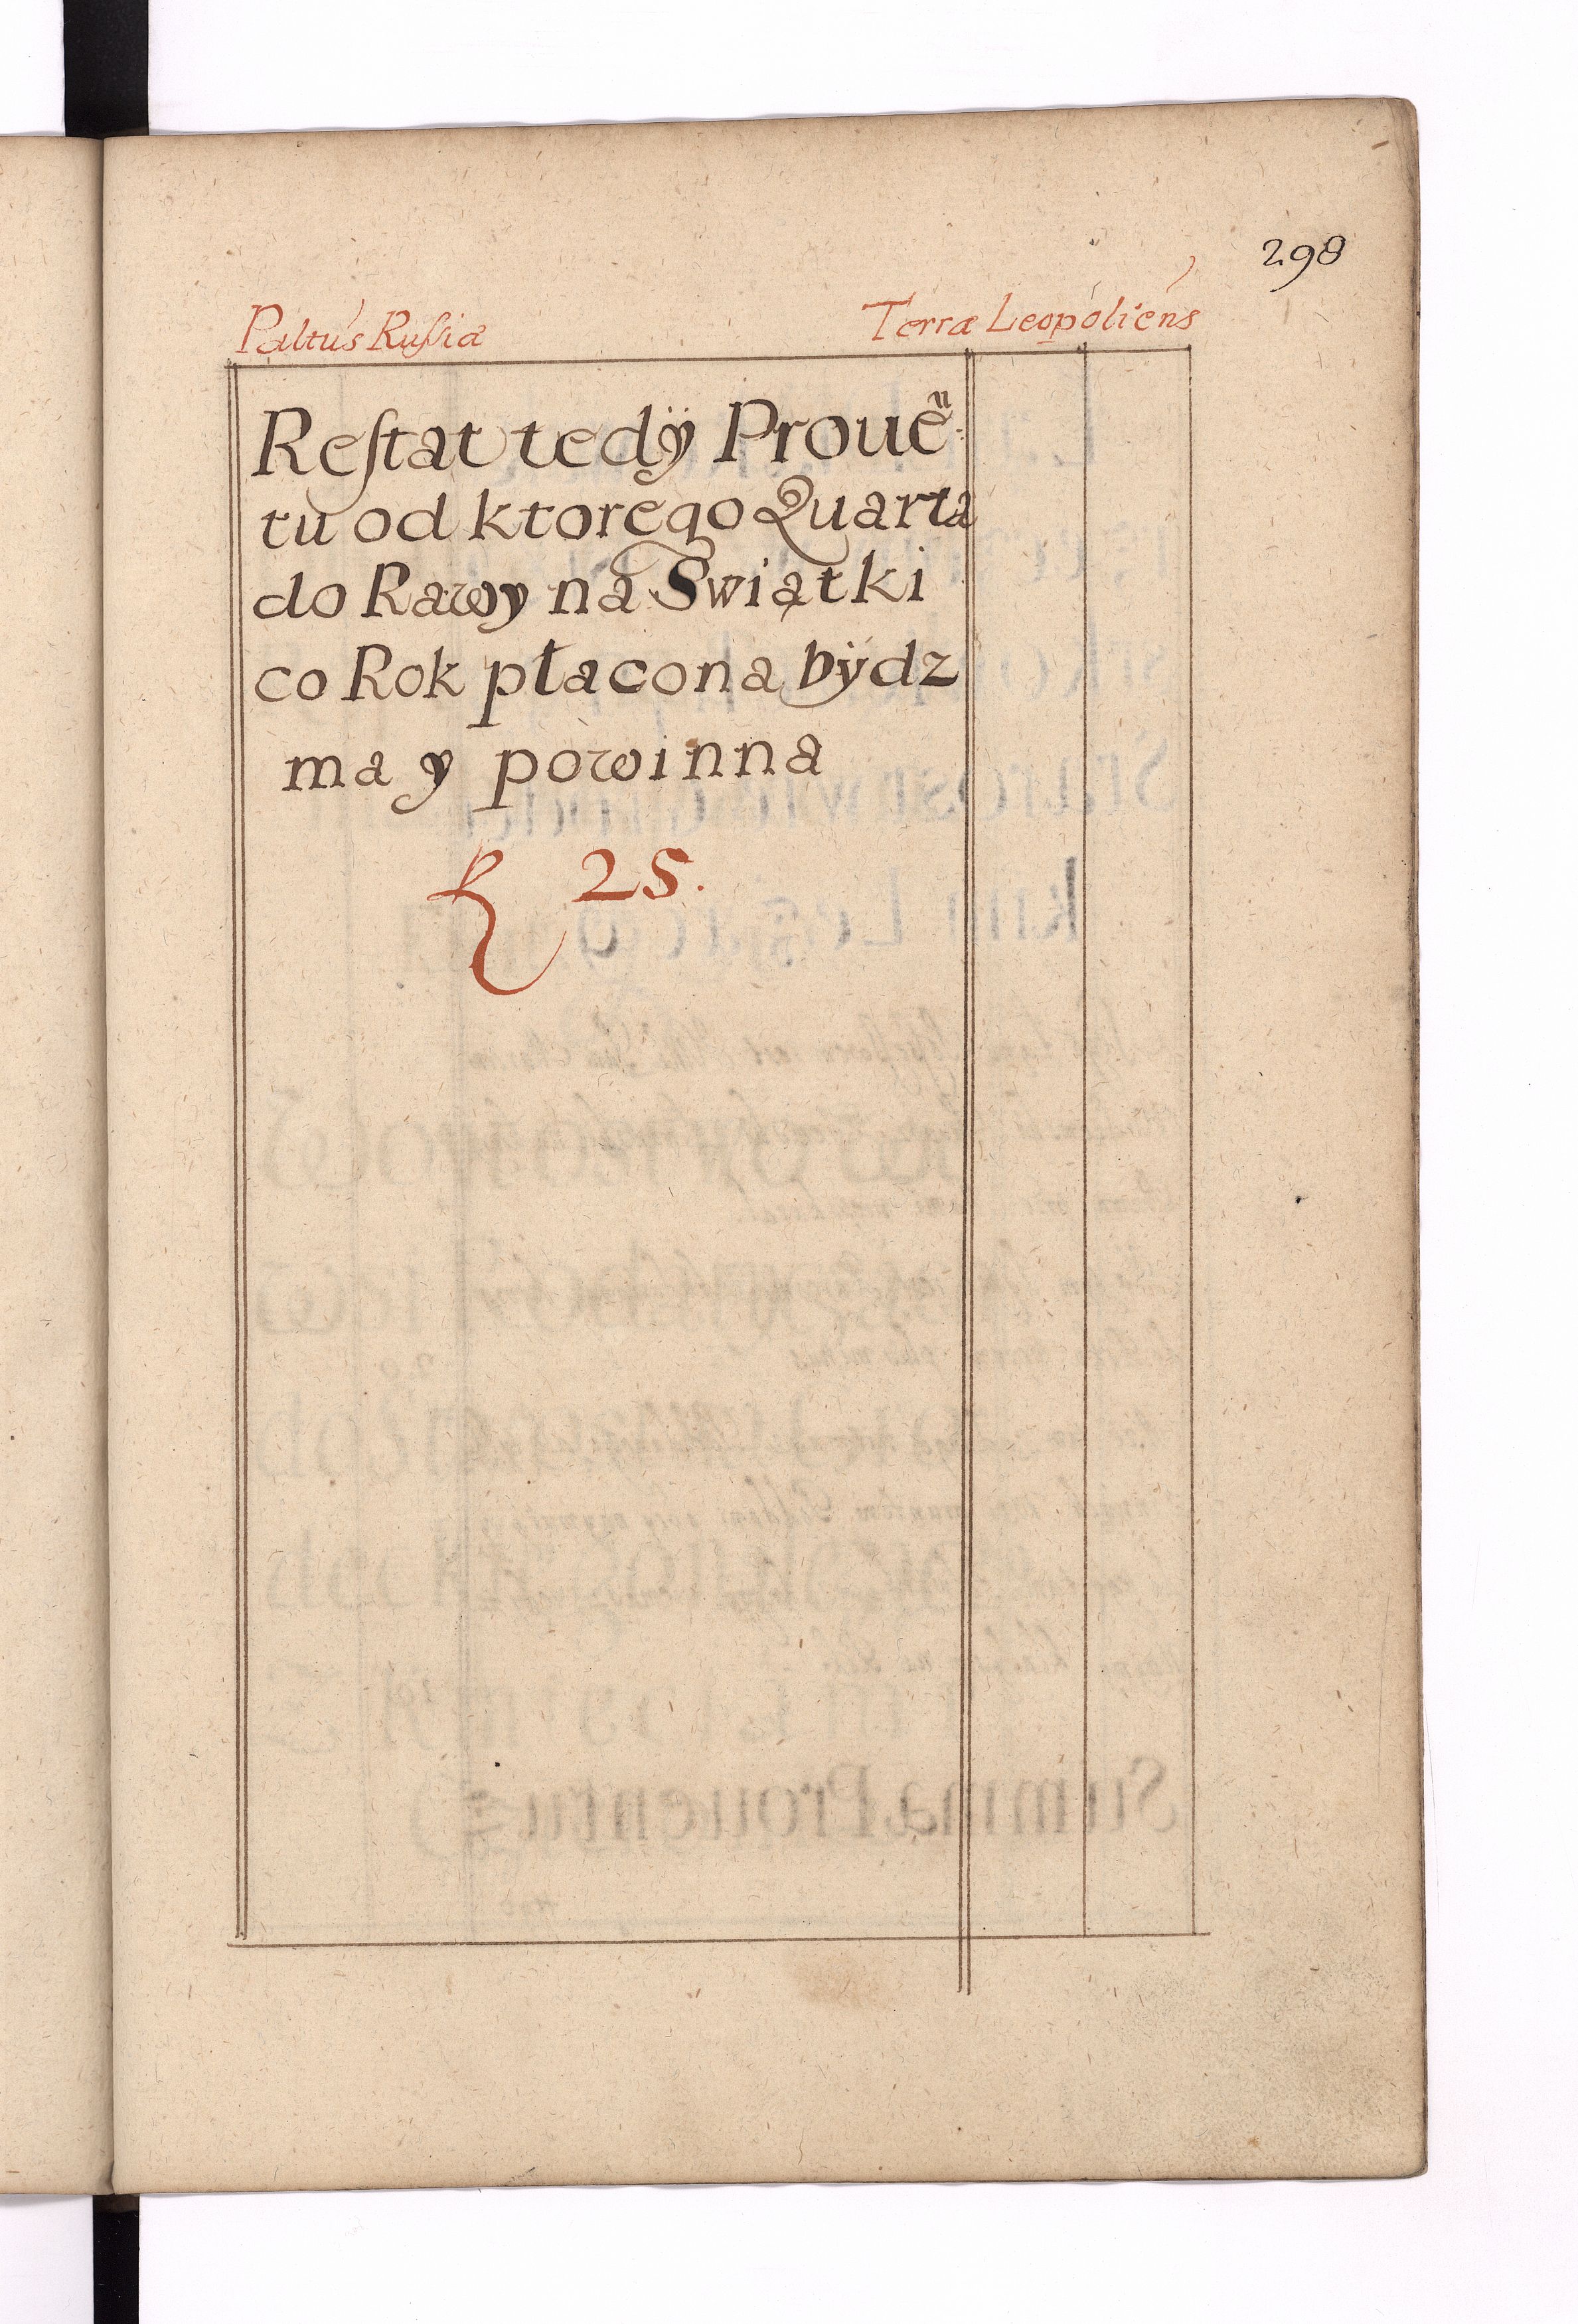 298
Paltus Rußiæ Terræ Leopoliens
Reſtat tedÿ Prouē-
tu od ktorego Quarta
do Rawy na Swiątki
co Rok płacona bÿdz
ma y powinna
25.